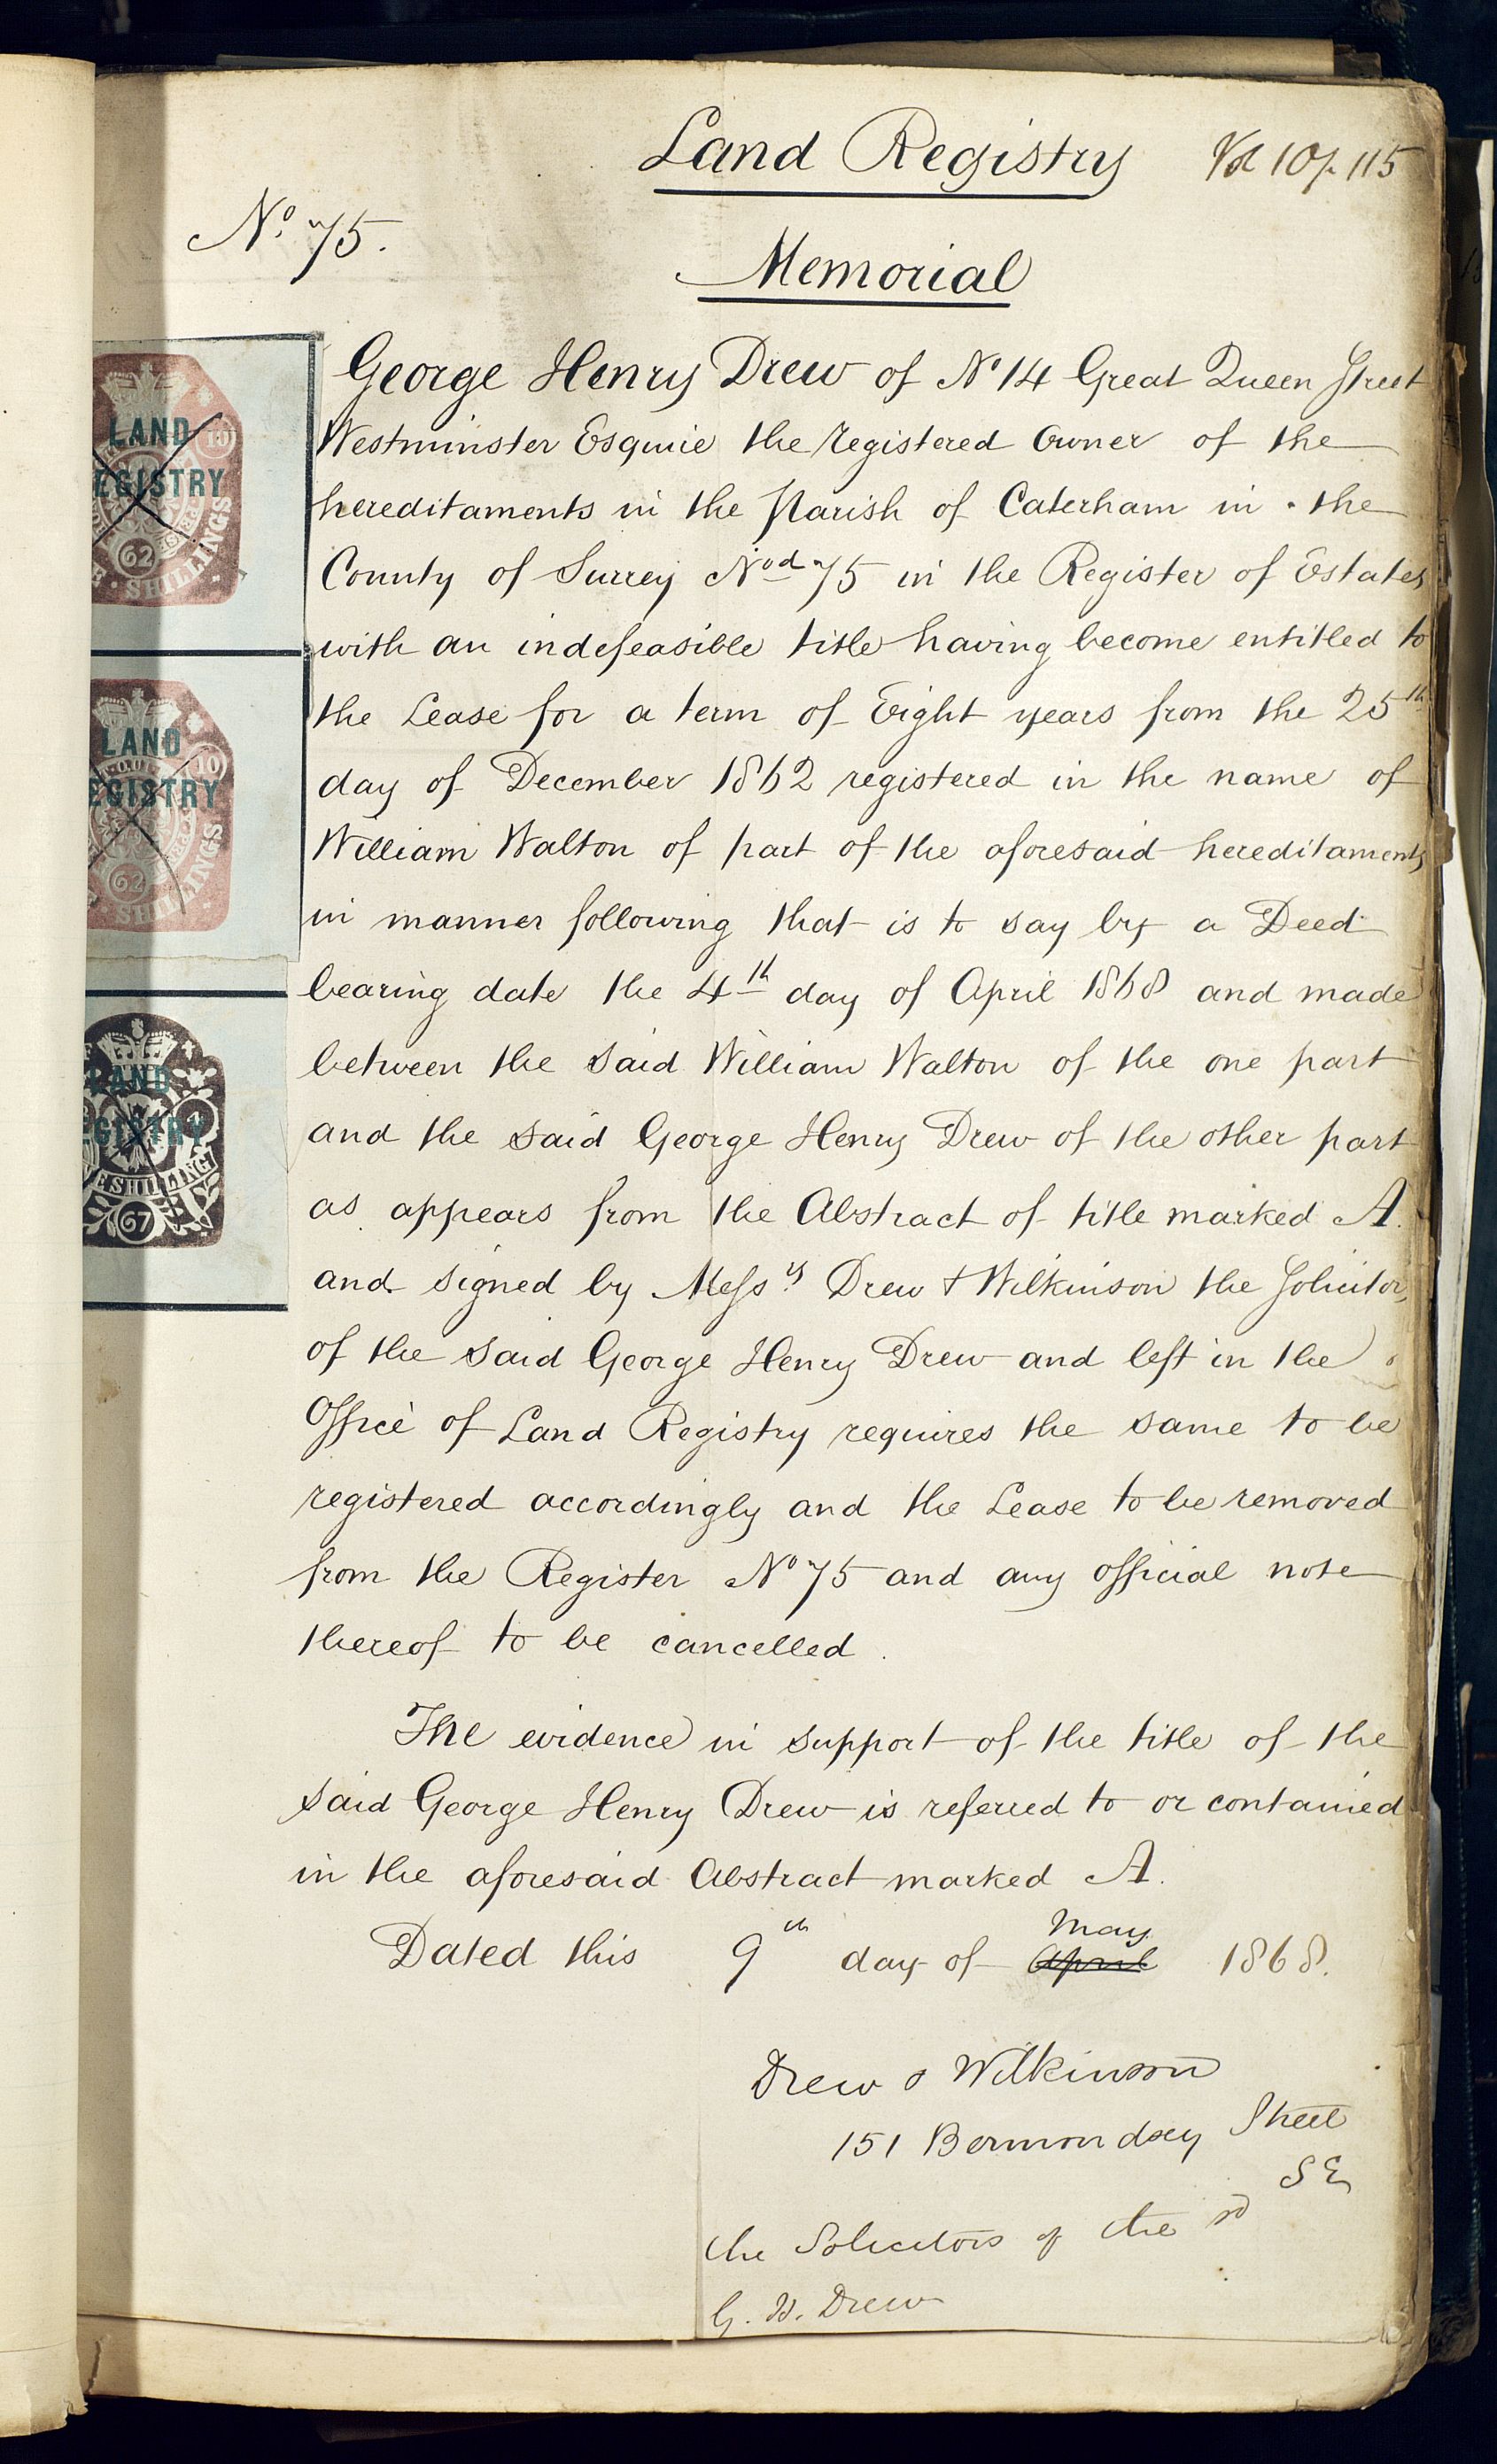 Land Registry
Vol 10 p. 115
No. 75.
Memorial
George Henry Drew of No 14 Great Queen Street
Westminster Esquire the registered owner of the
hereditaments in the Parish of Caterham in the
County of Surrey Nod 75 in the Register of Estates
with an indefeasible title having become entitled to
the Lease for a term of Eight years from the 25th
day of December 1862 registered in the name of
William Walton of part of the aforesaid hereditaments
in manner following that is to say by a Deed
bearing date the 4th day of April 1868 and made
between the said William Walton of the one part
and the said George Henry Drew of the other part
as appears from the Abstract of title marked A.
and signed by Messrs Drew & Wilkinson the Solicitors
of the said George Henry Drew and left in the
Office of Land Registry requires the same to be
registered accordingly and the Lease to be removed
from the Register No 75 and any official note
thereof to be cancelled.
The evidence in support of the title of the
said George Henry Drew is referred to or contained
in the aforesaid Abstract marked A.
May
Dated this 9th day of April 1868.
Drew & Wilkinson
151 Bermondsey Street
S E
the Solicitors of the sd
G. H. Drew
LAND
EGISTRY
10
62
SHILLINGS
LAND
EGISTRY
10
62
SHILLINGS
LAND
EGISTRY
E SHILLING
67